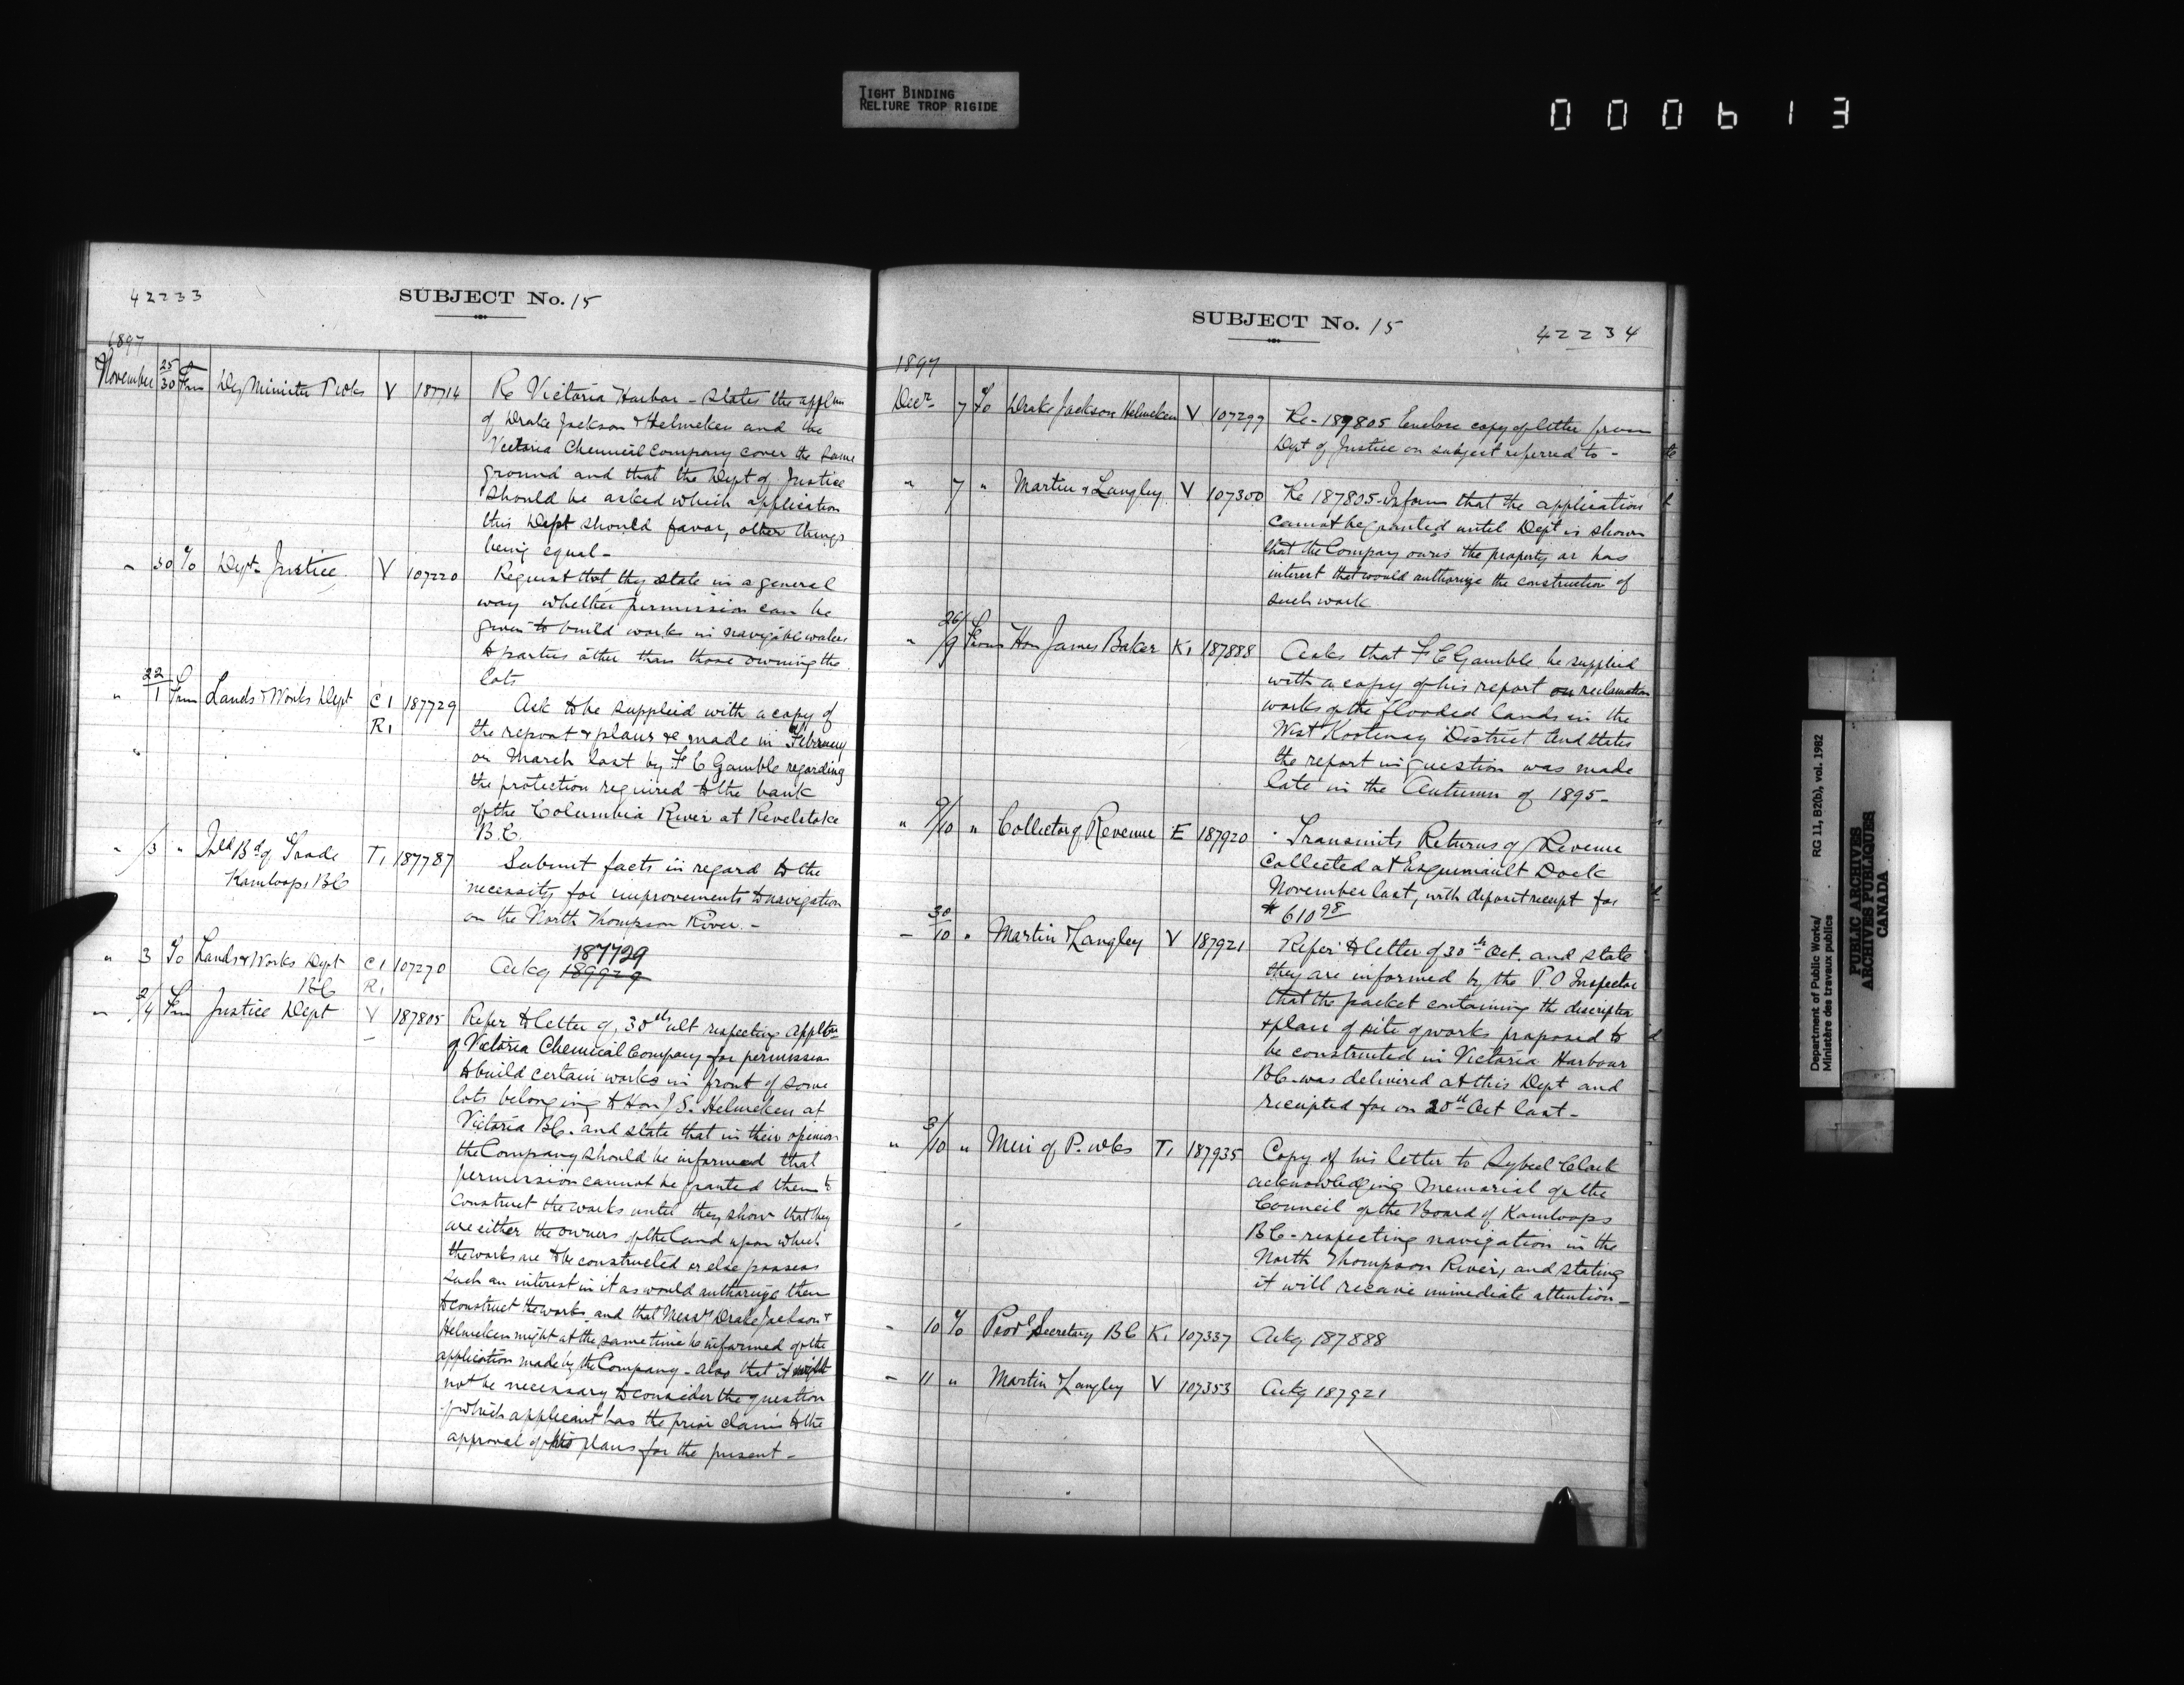 TIGHT BINDING
RELIURE TROP RIGIDE
000613
42233
SUBJECT No. 15
1897
November 25/30 From Dep Minister P Wks V 187714 Re Victoria Harbor - States the appltn
of Drake Jackson & Helmcken and the
Victoria Chemical Company cover the same
ground and that the Dept of Justice
should be asked which application
this Dept should favor, other things
being equal -
" 30 To Dept Justice V 107220 Request that they state in a general
way whether permission can be
given to build works in navigable waters
to parties other than those owning the
lots
" 22/1 From Lands & Works Dept C1 187729 Ask to be supplied with a copy of
R1 the report & plans &c made in February
or March last by F C Gamble regarding
the protection required to the bank
of the Columbia River at Revelstoke
B.C.
" /3 " Inld Bd of Trade T1 187787 Submit facts in regard to the
Kamloops BC necessity for improvements to navigation
on the North Thompson River. -
187729
" 3 To Lands & Works Dept C1 107270 Ackg 189929
BC R1
" 2/4 From Justice Dept V 187805 Refer to letter of 30th ult respecting appltn
of Victoria Chemical Company for permission
to build certain works in front of some
lots belonging to Hon J S. Helmcken at
Victoria BC. and state that in their opinion
the Company should be informed that
permission cannot be granted them to
construct the works until they show that they
are either the owners of the land upon which
the works are to be constructed or else possess
such an interest in it as would authorize them
to construct the works and that Messrs Drake Jackson &
Helmcken might at the same time be informed of the
application made by the Company - also that it might
not be necessary to consider the question
of which applicant has the prior claim to the
approval of his plans for the present -
SUBJECT No. 15
42234
1897
Decr 7 To Drake Jackson Helmcken V 107299 Re - 189805 Enclose copy of letter from
Dept of Justice on subject referred to -
" 7 " Martin & Langley V 107300 Re 187805 - Inform that the application
cannot be granted until Dept is shown
that the Company owns the property or has
interest that would authorize the construction of
such work
" 26/9 From Hon James Baker K1 187888 Asks that F C Gamble be supplied
with a copy of his report on reclamation
works of the flooded lands in the
West Kootenay District and states
the report in question was made
late in the Autumn of 1895 -
" 9/10 " Collector of Revenue E 187920 Transmits Returns of Revenue
collected at Esquimault Dock
November last, with deposit receipt for
$610 98
- 30/10 " Martin & Langley V 187921 Refer to letter of 30th Oct. and state
they are informed by the P O Inspector
that the packet containing the description
& plan of site of works proposed to
be constructed in Victoria Harbour
BC - was delivered at this Dept and
receipted for on 20th Oct last -
" 3/10 " Min of P. Wks T1 187935 Copy of his letter to Sybeel Clark
acknowledging Memorial of the
Council of the Board of Kamloops
BC - respecting navigation in the
North Thompson River, and stating
it will receive immediate attention -
- 10 To Provl Secretary BC K1 107337 Ackg 187888
- 11 " Martin & Langley V 107353 Ackg 187921
Department of Public Works/ RG 11, B2(b), vol. 1982
Ministère des travaux publics
PUBLIC ARCHIVES
ARCHIVES PUBLIQUES
CANADA